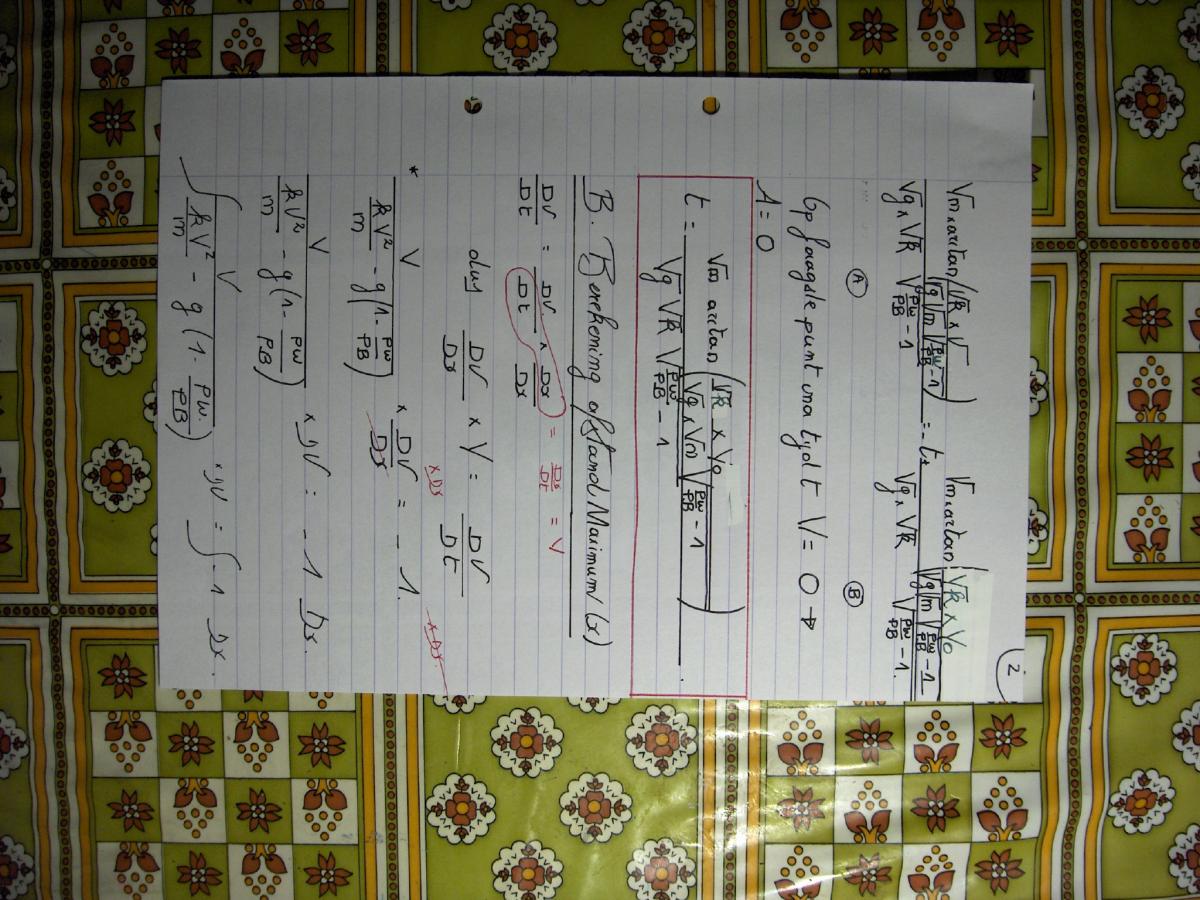 2
√m × arctan(√k × V / √g √m √(ρw/ρB - 1)) / √g × √k √(ρw/ρB - 1) = - t × √m × arctan(√k × V0 / √g √m √(ρw/ρB - 1)) / √g × √k √(ρw/ρB - 1).
A B
Op laagste punt una tijd t V = 0 →
A = 0
t = √m arctan(√k × V0 / √g × √m √(ρw/ρB - 1)) / √g √k √(ρw/ρB - 1) .
B. Berekening afstand Maximum (x)
DV/Dt = DV/Dt × Dx/Dx = Dx/Dt = V
dus DV/Dx × V = DV/Dt
× Dx × Dx
* V / kV²/m - g(1 - ρw/ρB) × DV/Dx = - 1.
V / kV²/m - g(1 - ρw/ρB) × DV = - 1 Dx.
∫ V / kV²/m - g(1 - ρw/ρB) × DV = ∫ - 1 Dx.